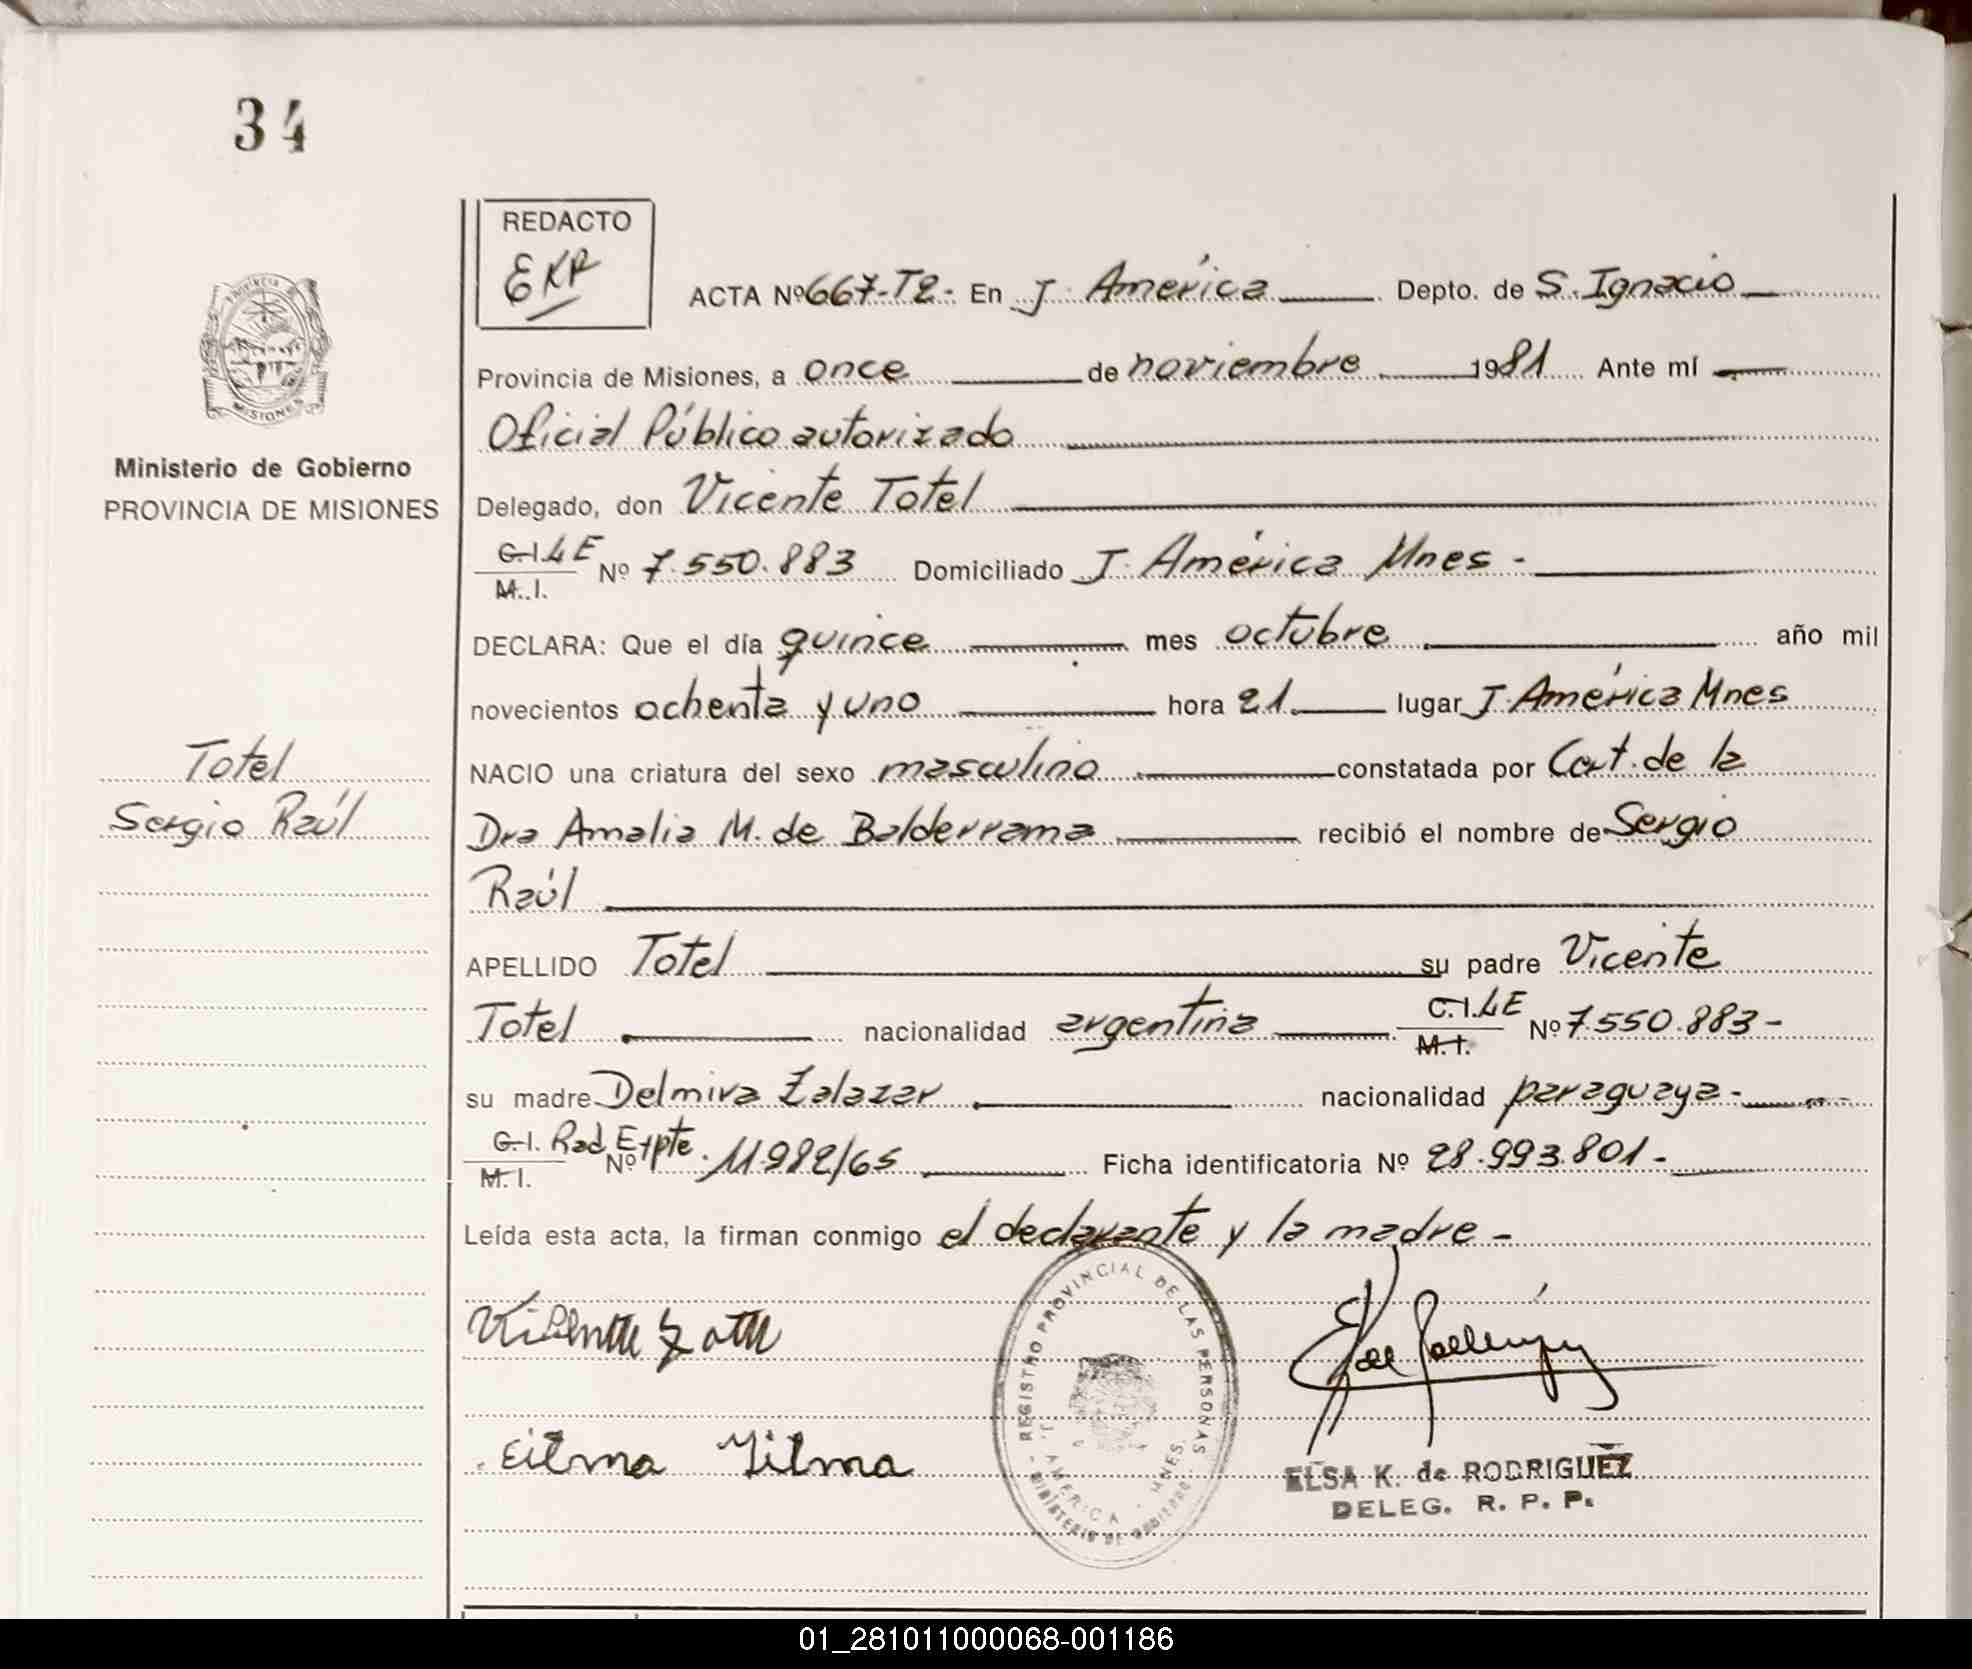 34
REDACTO
EKR
ACTA Nº 667-T2- En J. América Depto. de S. Ignacio
Provincia de Misiones, a once de noviembre 1981 Ante mí
Oficial Público autorizado
Ministerio de Gobierno
PROVINCIA DE MISIONES
Delegado, don Vicente Totel
C.I. L E Nº 7.550.883 Domiciliado J. América Mnes -
M. I.
DECLARA: Que el día quince mes octubre año mil
novecientos ochenta y uno hora 21 lugar J. América Mnes
Totel
Sergio Raúl
NACIO una criatura del sexo masculino constatada por Cert. de la
Dra Amalia M. de Balderrama recibió el nombre de Sergio
Raúl
APELLIDO Totel su padre Vicente
Totel nacionalidad argentina C.I. L E Nº 7.550.883-
M. I.
su madre Delmira Zalazar nacionalidad paraguaya-
C.I. Rad. Expte. Nº 11.982/65 Ficha identificatoria Nº 28.993.801-
M. I.
Leída esta acta, la firman conmigo el declarante y la madre-
REGISTRO PROVINCIAL DE LAS PERSONAS
J. AMERICA - MNES.
MINISTERIO DE GOBIERNO
ELSA K. de RODRIGUEZ
DELEG. R. P. P.
01_281011000068-001186